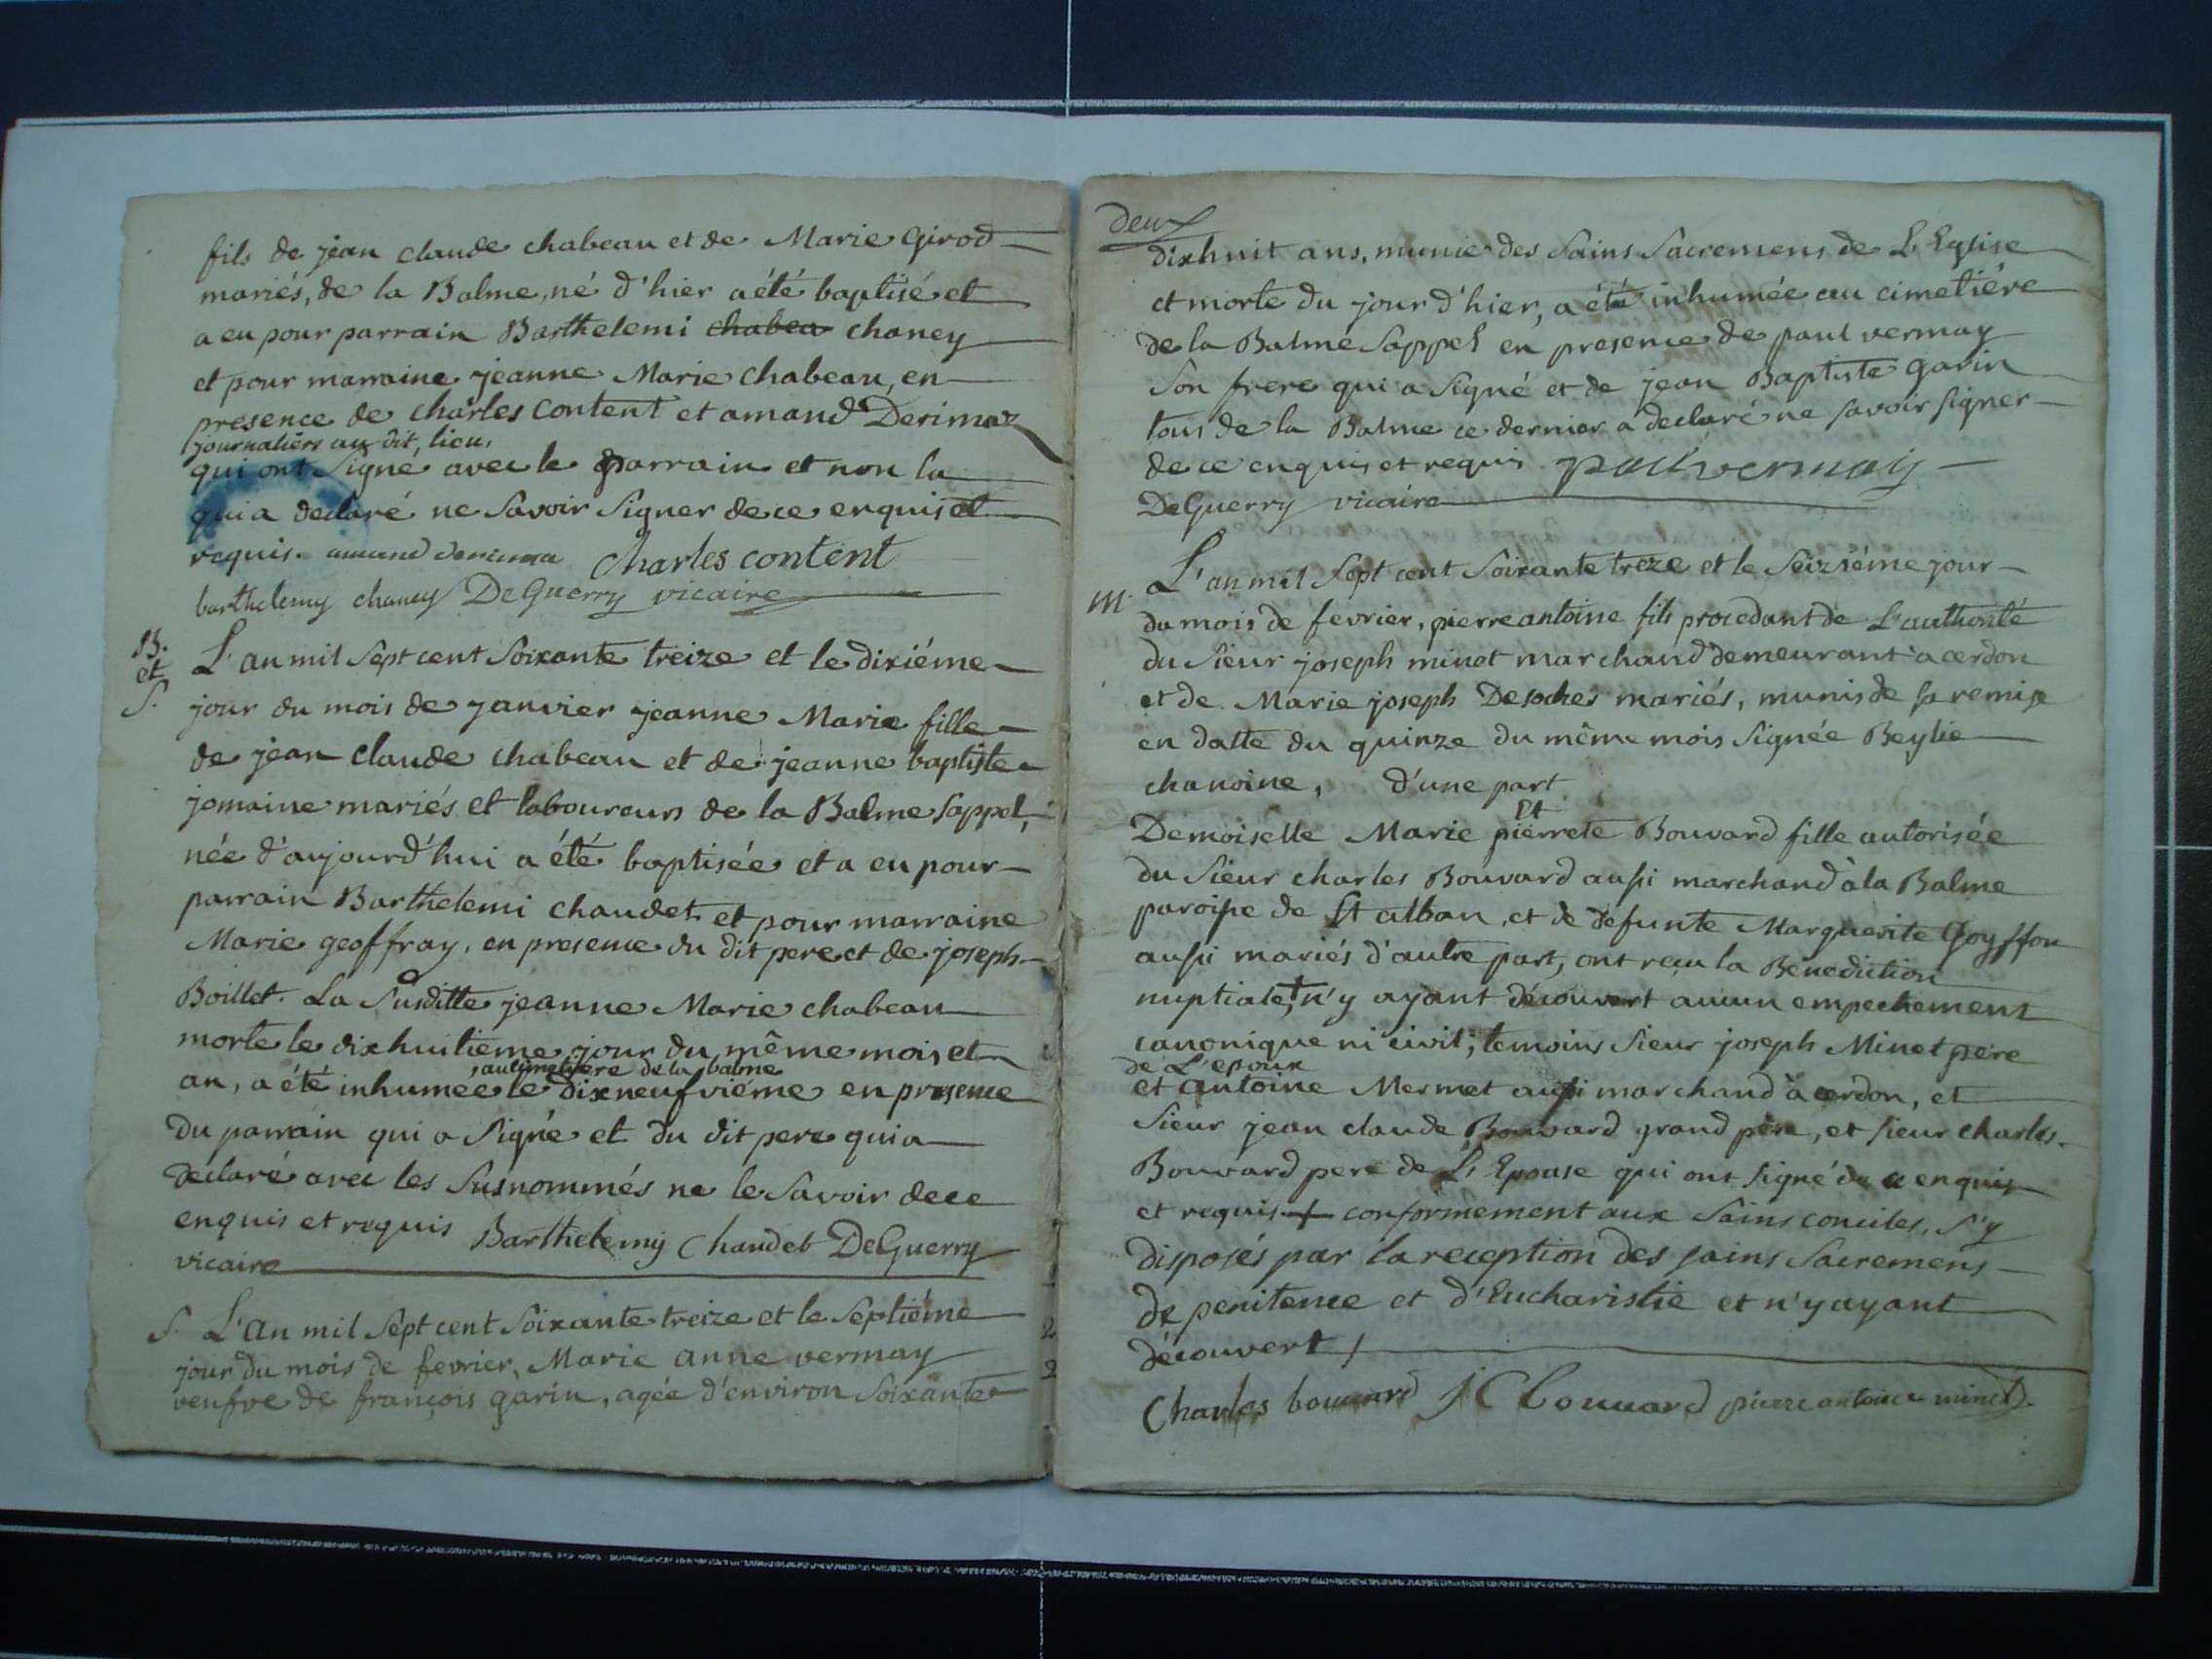 fils de jean claude chabeau et de Marie Girod
mariés, de la Balme, né d'hier a été baptisé et
a eu pour parrain Barthelemi chabea chaney
et pour marraine jeanne Marie chabeau, en
presence de charles content et amand Derimaz
journaliers au dit, lieu,
qui ont signé avec le parrain et non la
qui a declaré ne Savoir Signer de ce enquis et
requis. amand derima Charles content
barthelemy chaney DeGuerry vicaire
B.
et
S.
L'an mil Sept cent Soixante treize et le dixiéme
jour du mois de janvier jeanne Marie fille
de jean claude chabeau et de jeanne baptiste
jomaine mariés et laboureurs de la Balme Sappel,
née d'aujourd'hui a été baptisée et a eu pour
parrain Barthelemi chaudet et pour marraine
Marie geoffray, en presence du dit pere et de joseph
Boillet. La Susditte jeanne Marie chabeau
morte le dixhuitieme jour du même mois et
, au cimetiere de la balme
an, a été inhumée le dixneufviéme en presence
du parrain qui a Signé et du dit pere qui a
declaré avec les Susnommés ne le Savoir de ce
enquis et requis Barthelemy Chaudet DeGuerry
vicaire
S. L'an mil Sept cent Soixante treize et le Septiéme
jour du mois de fevrier, Marie anne vermay
veufve de françois garin, agée d'environ Soixante
2
2
deux
dixhuit ans, munie des Sains Sacremens de L'Eglise
et morte du jour d'hier, a été inhumée au cimetiére
de la Balme Sappel en presence de paul vermay
Son frere qui a Signé et de jean Baptiste garin
tous de la Balme ce dernier a declaré ne savoir signer
de ce enquis et requis paul vermay
DeGuerry vicaire
M.
L'an mil Sept cent Soixante treze et le Seiziéme jour
du mois de fevrier, pierre antoine fils procedant de L'authorité
du Sieur joseph minet marchand demeurant a cerdon
et de Marie joseph Desoches mariés, munis de sa remise
en datte du quinze du même mois Signée Beylie
chanoine, d'une part
Et
Demoiselle Marie pierrete Bouvard fille autorisée
du Sieur charles Bouvard aussi marchand à la Balme
paroisse de St alban, et de defunte Marguerite Goyffon
aussi mariés d'autre part, ont reçu la Benediction
nuptiale,+ n'y ayant découvert aucun empechement
canonique ni civil; temoins Sieur joseph Minet pere
de L'epoux
et antoine Mermet aussi marchand à cerdon, et
Sieur jean claude Bouvard grand pere, et sieur charles
Bouvard pere de L'Epouse qui ont Signé de ce enquis
et requis + conformement aux Sains conciles, S'y
disposés par la reception des sains Sacremens
de penitence et d'Eucharistie et n'y ayant
découvert /
Charles bouvard J C bouvard pierre antoine minet